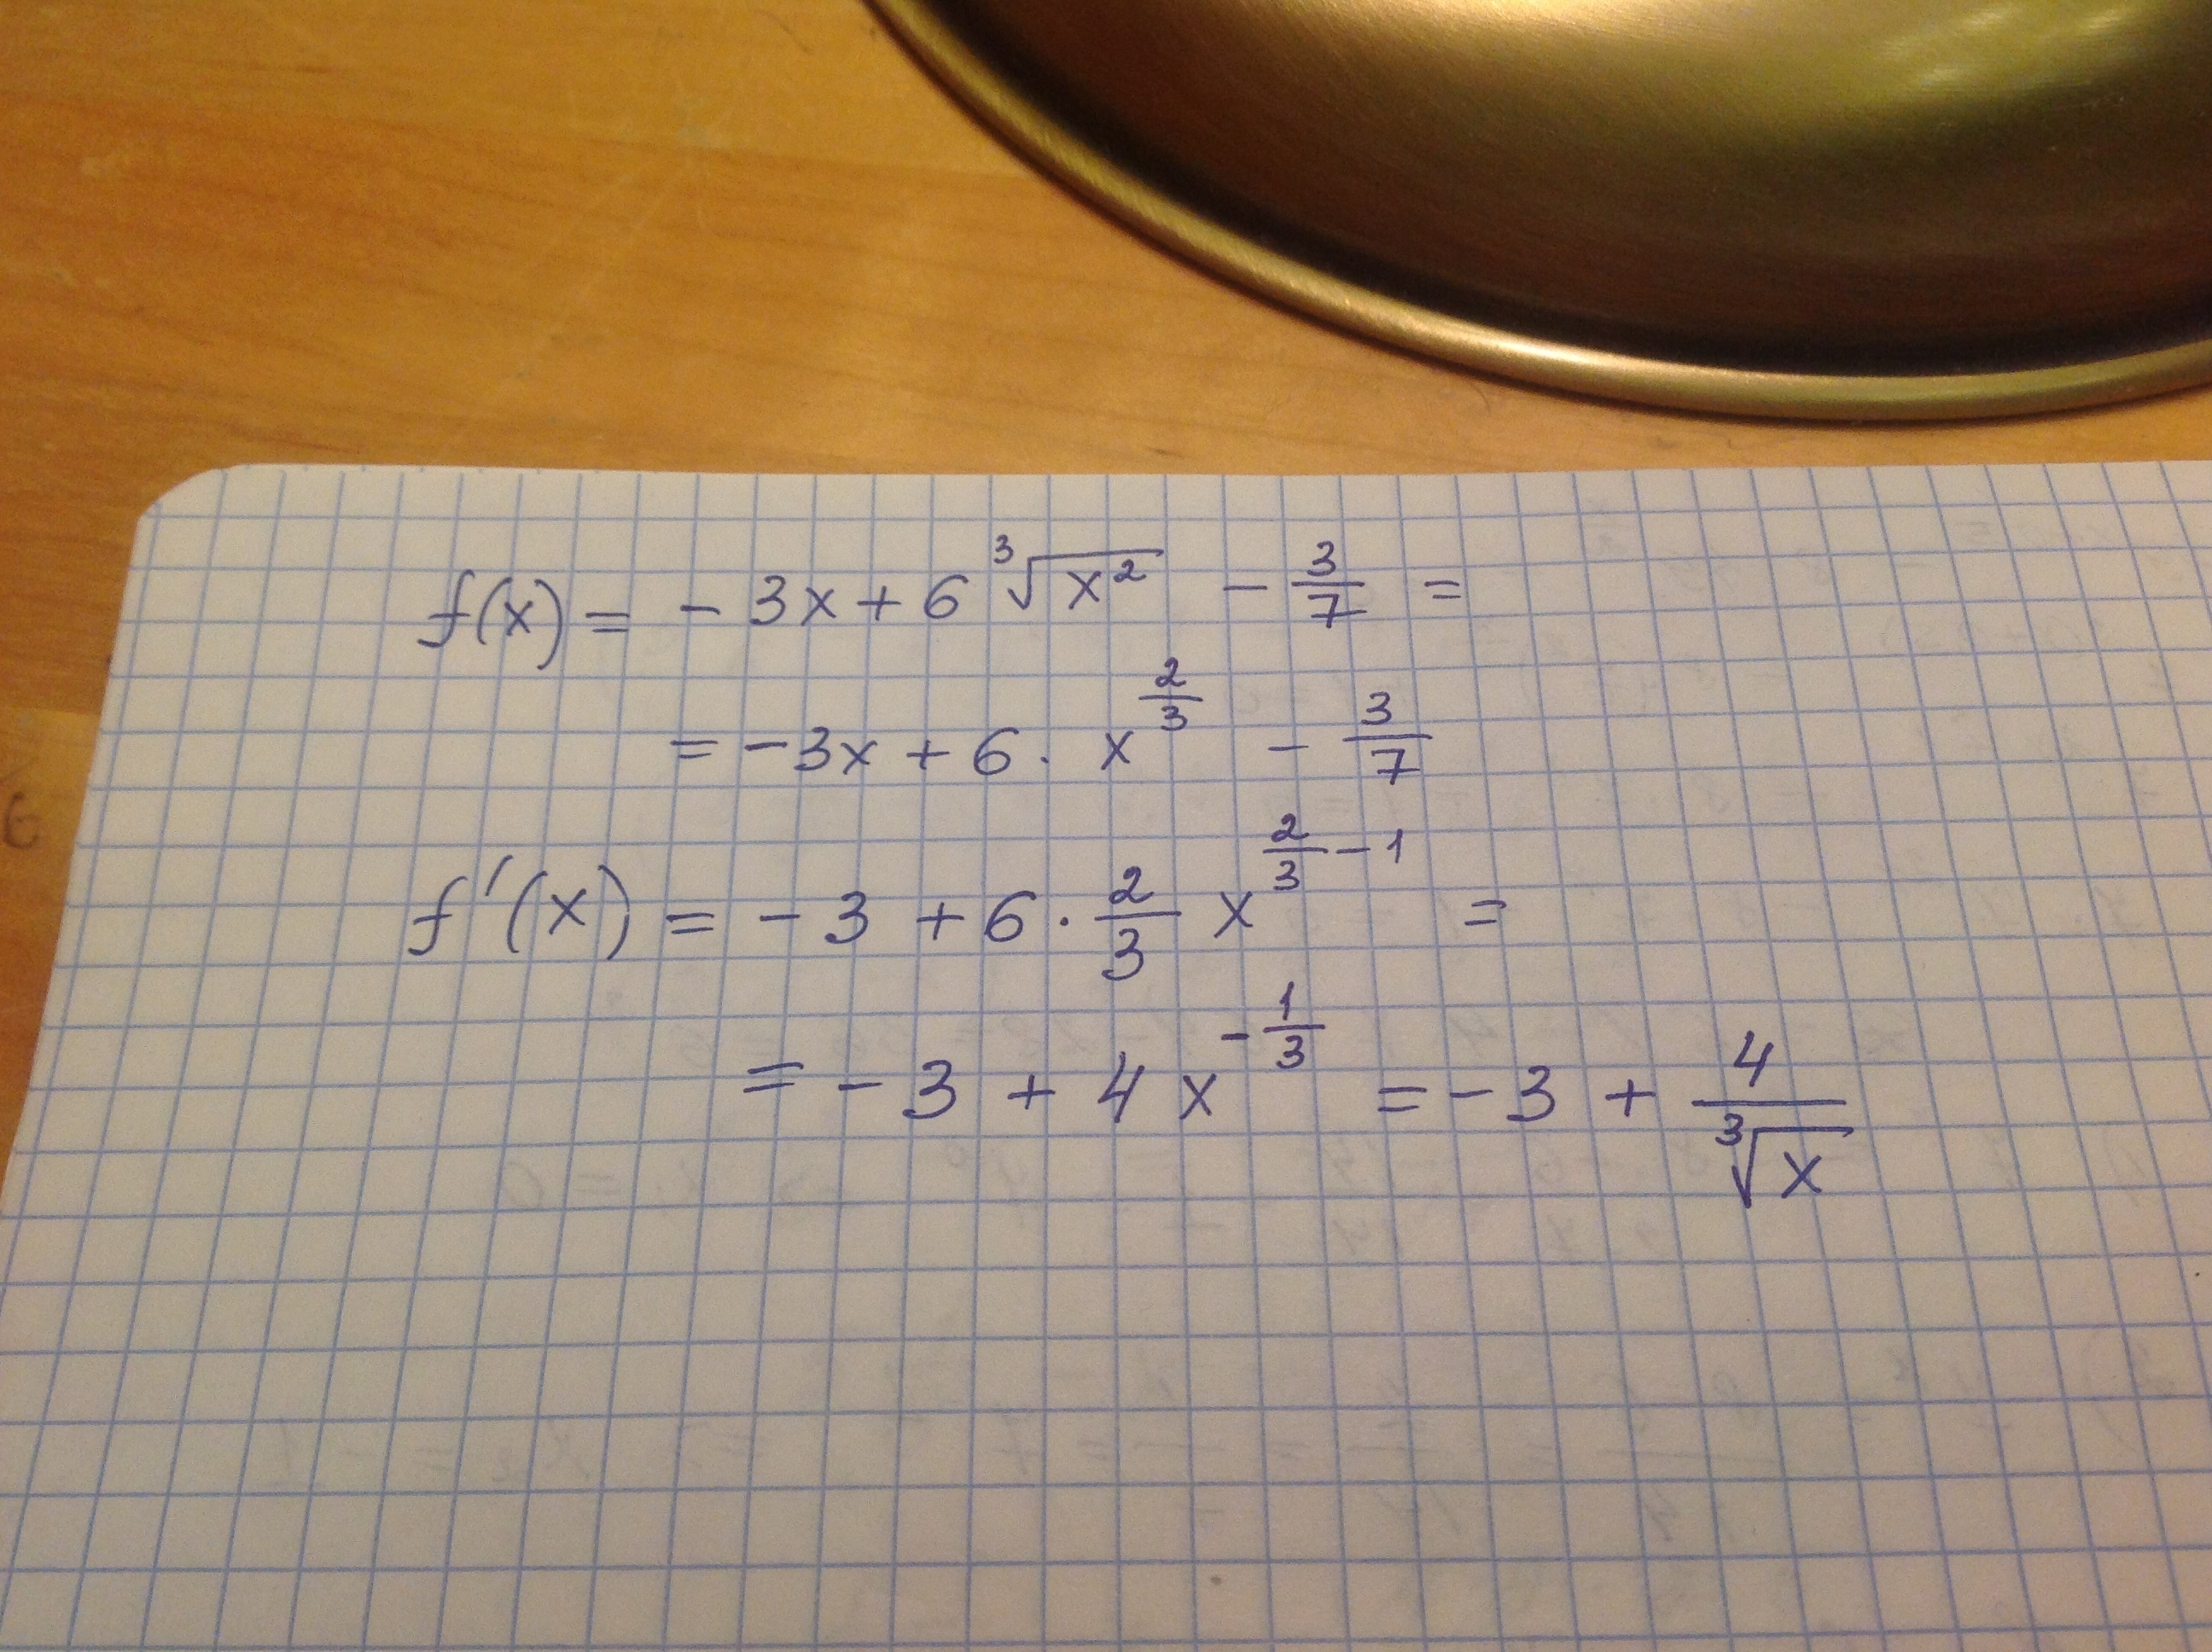 f(x) = - 3x + 6 ∛(x²) - 3/7 =
= -3x + 6 · x^(2/3) - 3/7
f'(x) = - 3 + 6 · 2/3 x^(2/3 - 1) =
= - 3 + 4 x^(-1/3) = - 3 + 4/∛x